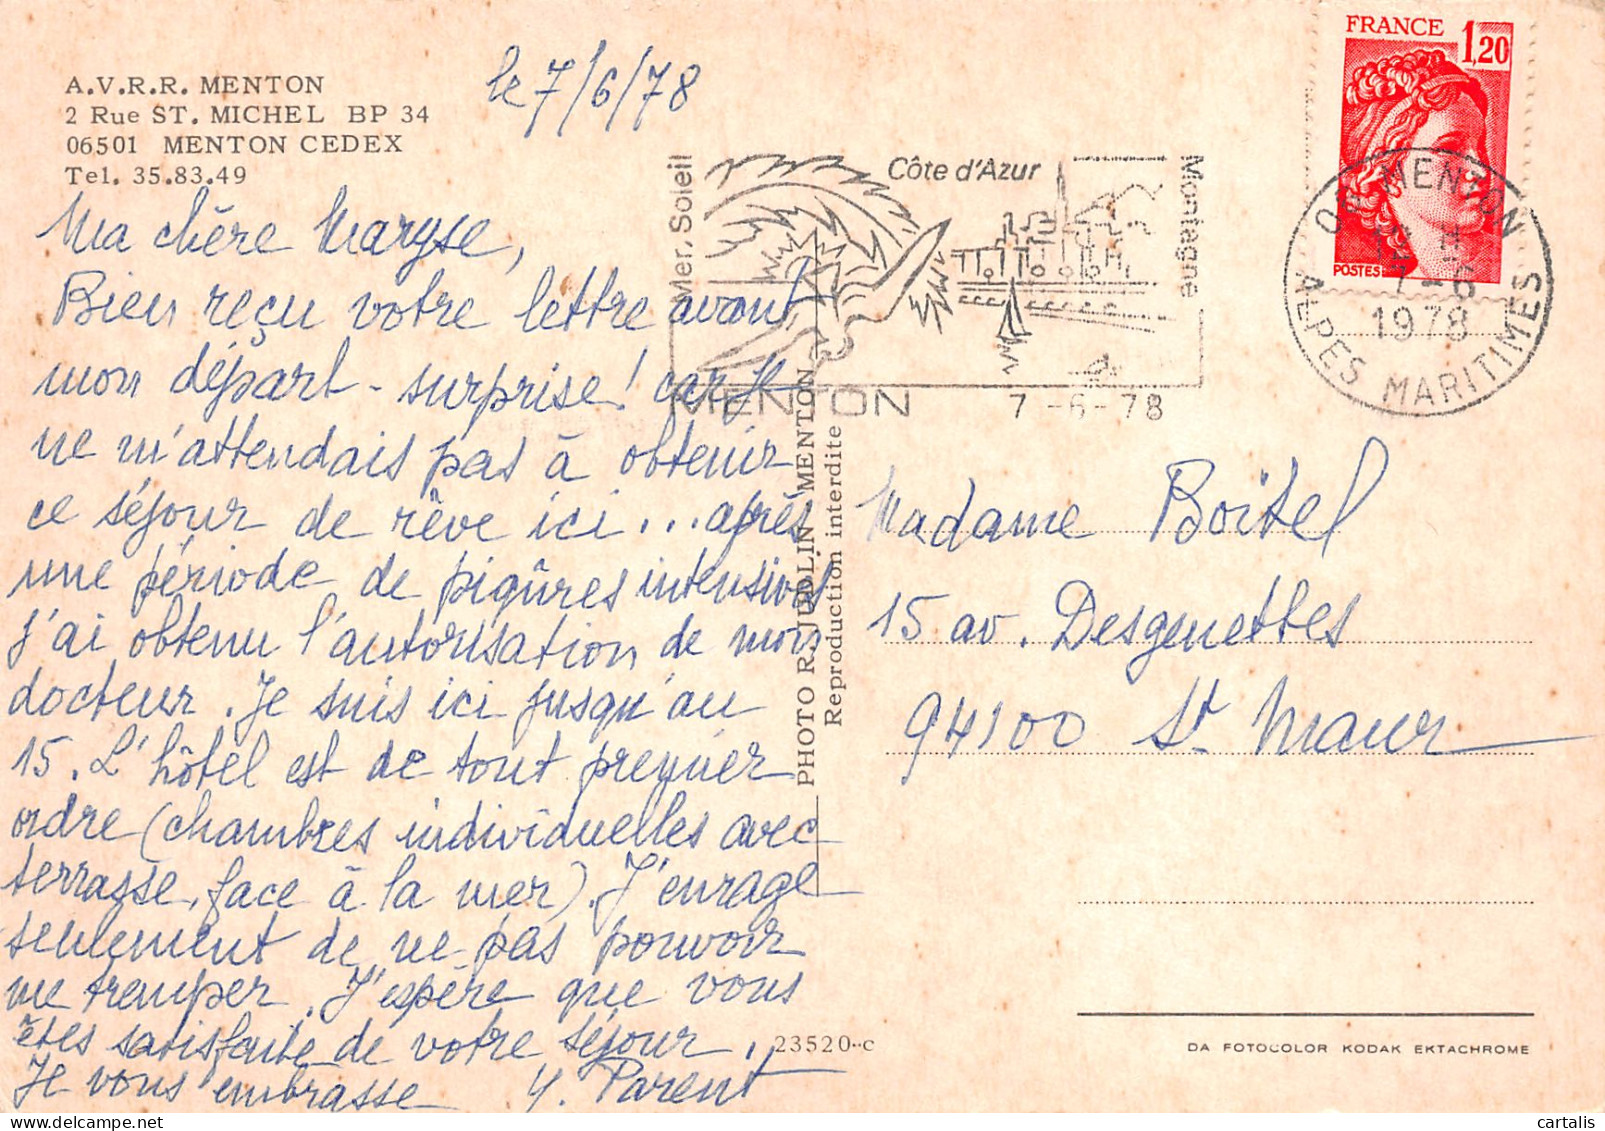 A.V.R.R. MENTON
2 Rue ST. MICHEL BP 34
06501 MENTON CEDEX
Tel. 35.83.49
le 7/6/78
Ma chère Maryse,
Bien reçu votre lettre avant
mon départ - surprise! car je
ne m'attendais pas à obtenir
ce séjour de rêve ici... après
une période de piqûres intensives
J'ai obtenu l'autorisation de mon
docteur. Je suis ici jusqu'au
15. L'hôtel est de tout premier
ordre (chambres individuelles avec
terrasse, face à la mer). J'enrage
seulement de ne pas pouvoir
me tremper. J'espère que vous
êtes satisfaite de votre séjour.
Je vous embrasse Y. Parent
Mer. Soleil
Côte d'Azur
Montagne
MENTON
7 -6-78
FRANCE 1,20
POSTES
06 MENTON
7 -6
1978
ALPES MARITIMES
PHOTO R. JUDLIN MENTON
Reproduction interdite
Madame Boitel
15 av. Desgenettes
94100 St Maur
23520-c
DA FOTOCOLOR KODAK EKTACHROME
© cartalis